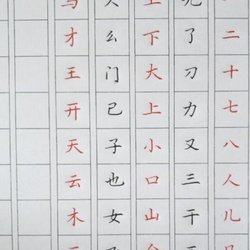 一二十七八人儿
了力又三干
下大上小口山
么门已子也女
才王开天云木